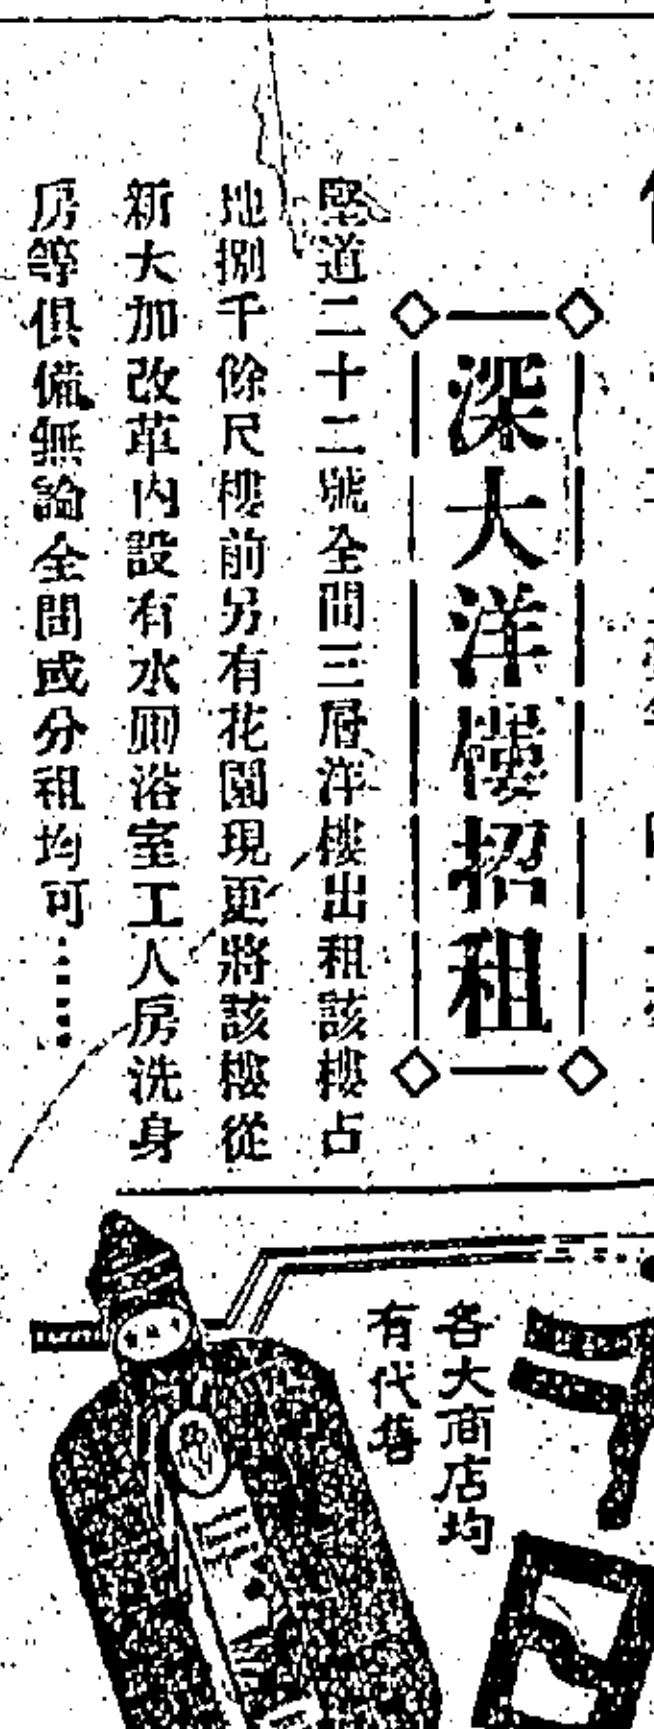 深大洋樓招租
堅道二十二號全間三層洋樓出租該樓占
地捌千餘尺樓前另有花園現更將該樓從
新大加改革內設有水厠浴室工人房洗身
房等俱備無論全間或分租均可……
各大商店均
有代售